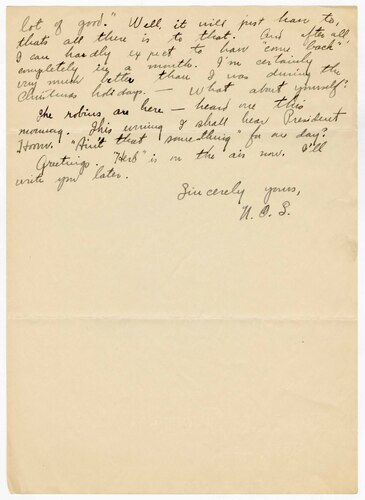 lot of good." Well, it will just have to,
that's all there is to that. And after all,
I can hardly expect to have "come back"
completely in a month. I'm certainly
very much better than I was during the
Christmas holidays. — What about yourself?
The robins are here — heard one this
morning. This evening I shall hear President
Hoover. "Ain't that something" for one day?
Greetings. "Herb" is on the air now. I'll
write you later.
Sincerely yours,
N. O. S.